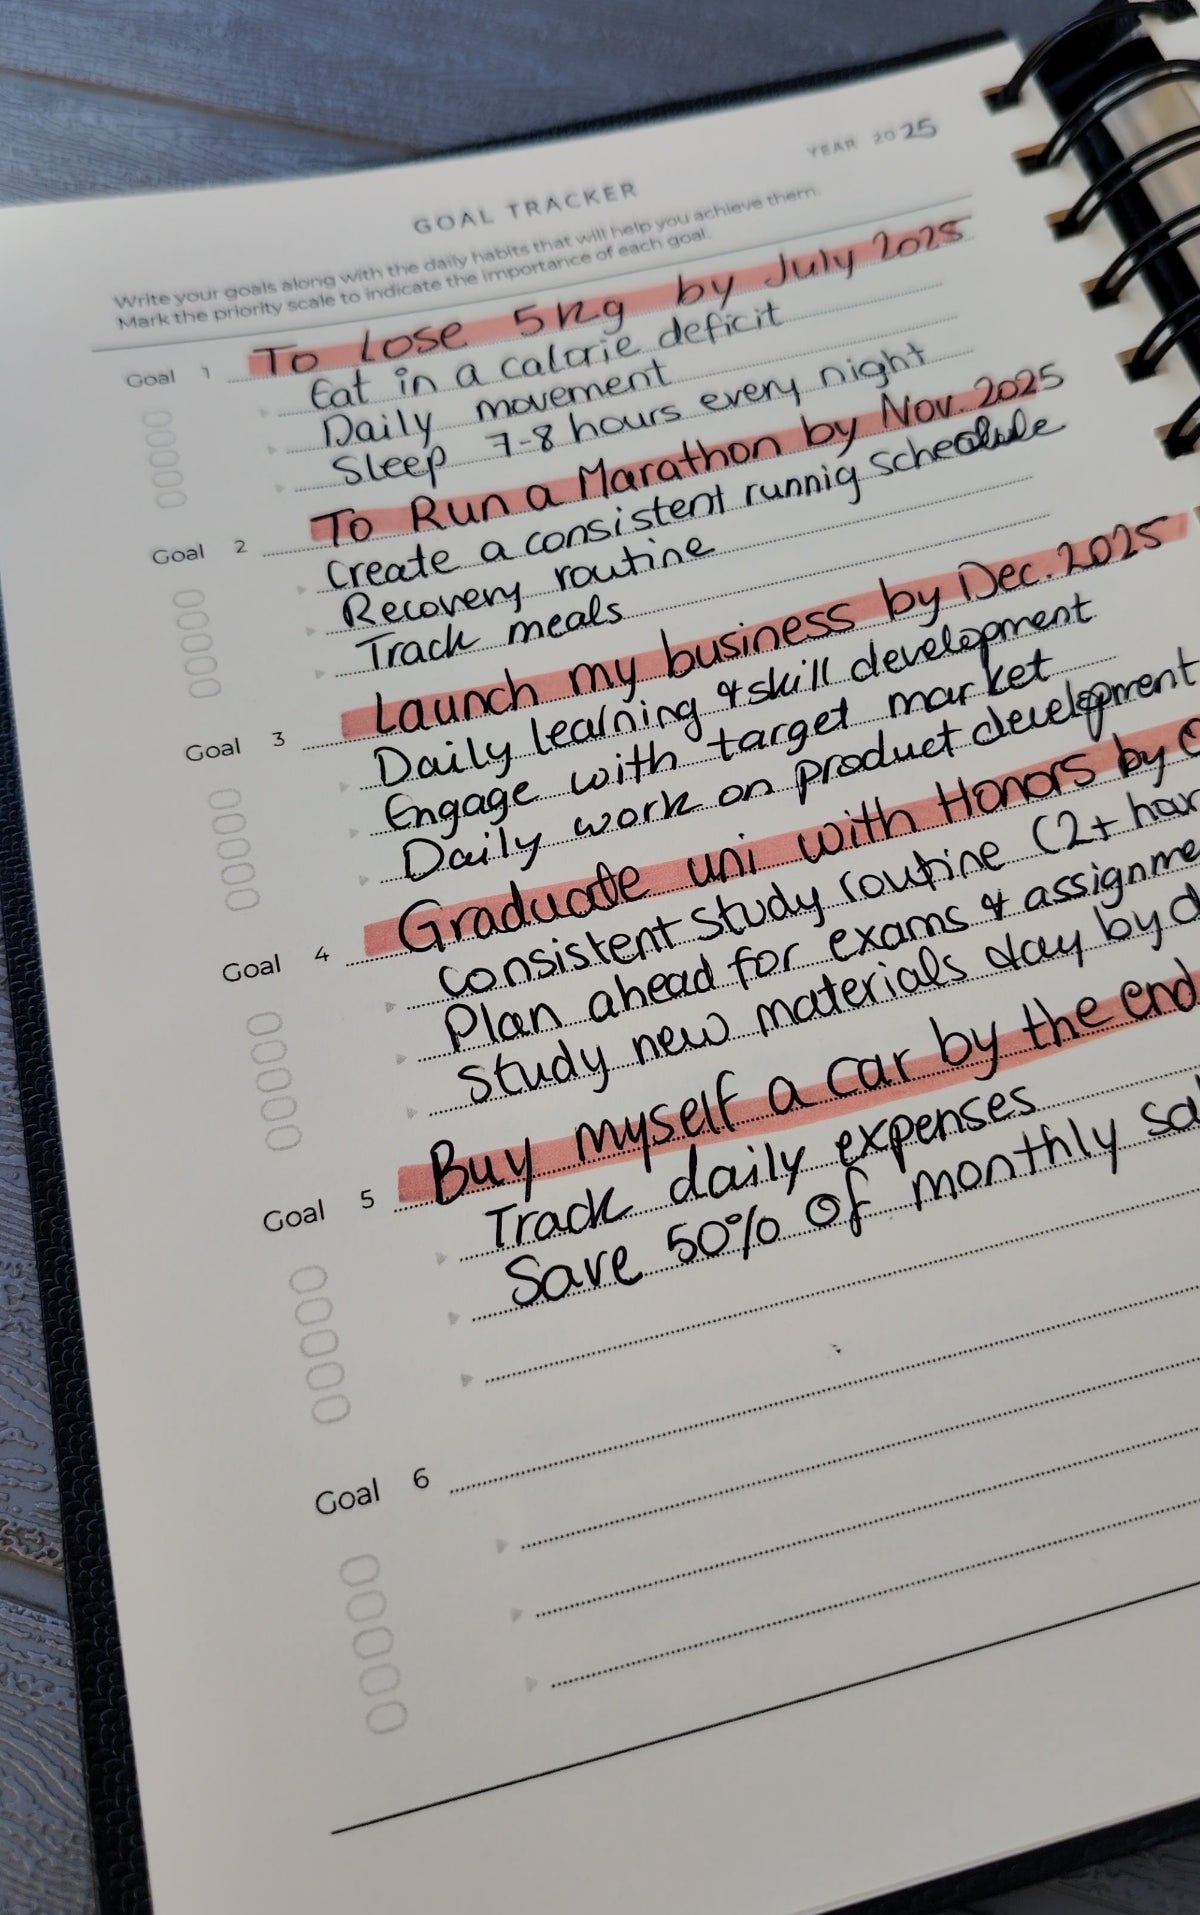 YEAR 2025
GOAL TRACKER
Write your goals along with the daily habits that will help you achieve them.
Mark the priority scale to indicate the importance of each goal.
Goal 1 To Lose 5kg by July 2025
Eat in a calorie deficit
Daily movement
Sleep 7-8 hours every night
Goal 2 To Run a Marathon by Nov. 2025
Create a consistent runnig schedule
Recovery routine
Track meals
Goal 3 Launch my business by Dec. 2025
Daily learning & skill development
Engage with target market
Daily work on product development
Goal 4 Graduate uni with Honors by
consistent study routine (2+
Plan ahead for exams &
Study new materials day by
Goal 5 Buy myself a car by the end
Track daily expenses
Save 50% of monthly
Goal 6